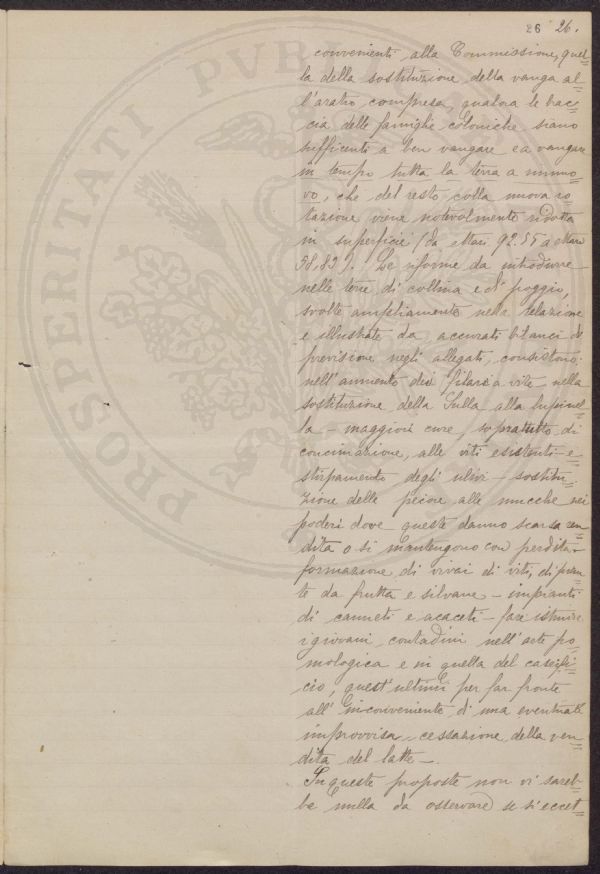 26 26.
convenienti alla Commissione, quel=
la della sostituzione della vanga al=
l'aratro compresa, qualora le brac=
cia delle famiglie coloniche siano
sufficenti a ben vangare e a vangare
in tempo tutta la terra a rinno=
vo, che del resto colla nuova ro=
tazione viene notevolmente ridotta
in superficie (da ettari 92.55 a ettari
58,83). Le riforme da introdurre
nelle terre di collina e di poggio,
svolte ampliamente nella relazione
e illustrate da accurati bilanci di
previsione negli allegati, consistono:
nell'aumento dei filari a vite - nella
sostituzione della Sulla alla lupinel=
la - maggiori cure, sopratutto di
concimazione, alle viti esistenti - e=
stirpamento degli ulivi - sostitu=
zione delle pecore alle mucche nei
poderi dove queste danno scarsa ren=
dita o si mantengono con perdita -
formazione di vivai di viti, di pian=
te da frutta e silvane - impianti
di canneti e acaceti - fare istruire
i giovani contadini nell'arte po=
mologica e in quella del caseifi=
cio, quest'ultimi per far fronte
all'inconveniente di una eventuale
improvvisa cessazione della ven=
dita del latte -.
In queste proposte non vi sareb=
be nulla da osservare se si eccet=
PROSPERITATI PVBLICAE